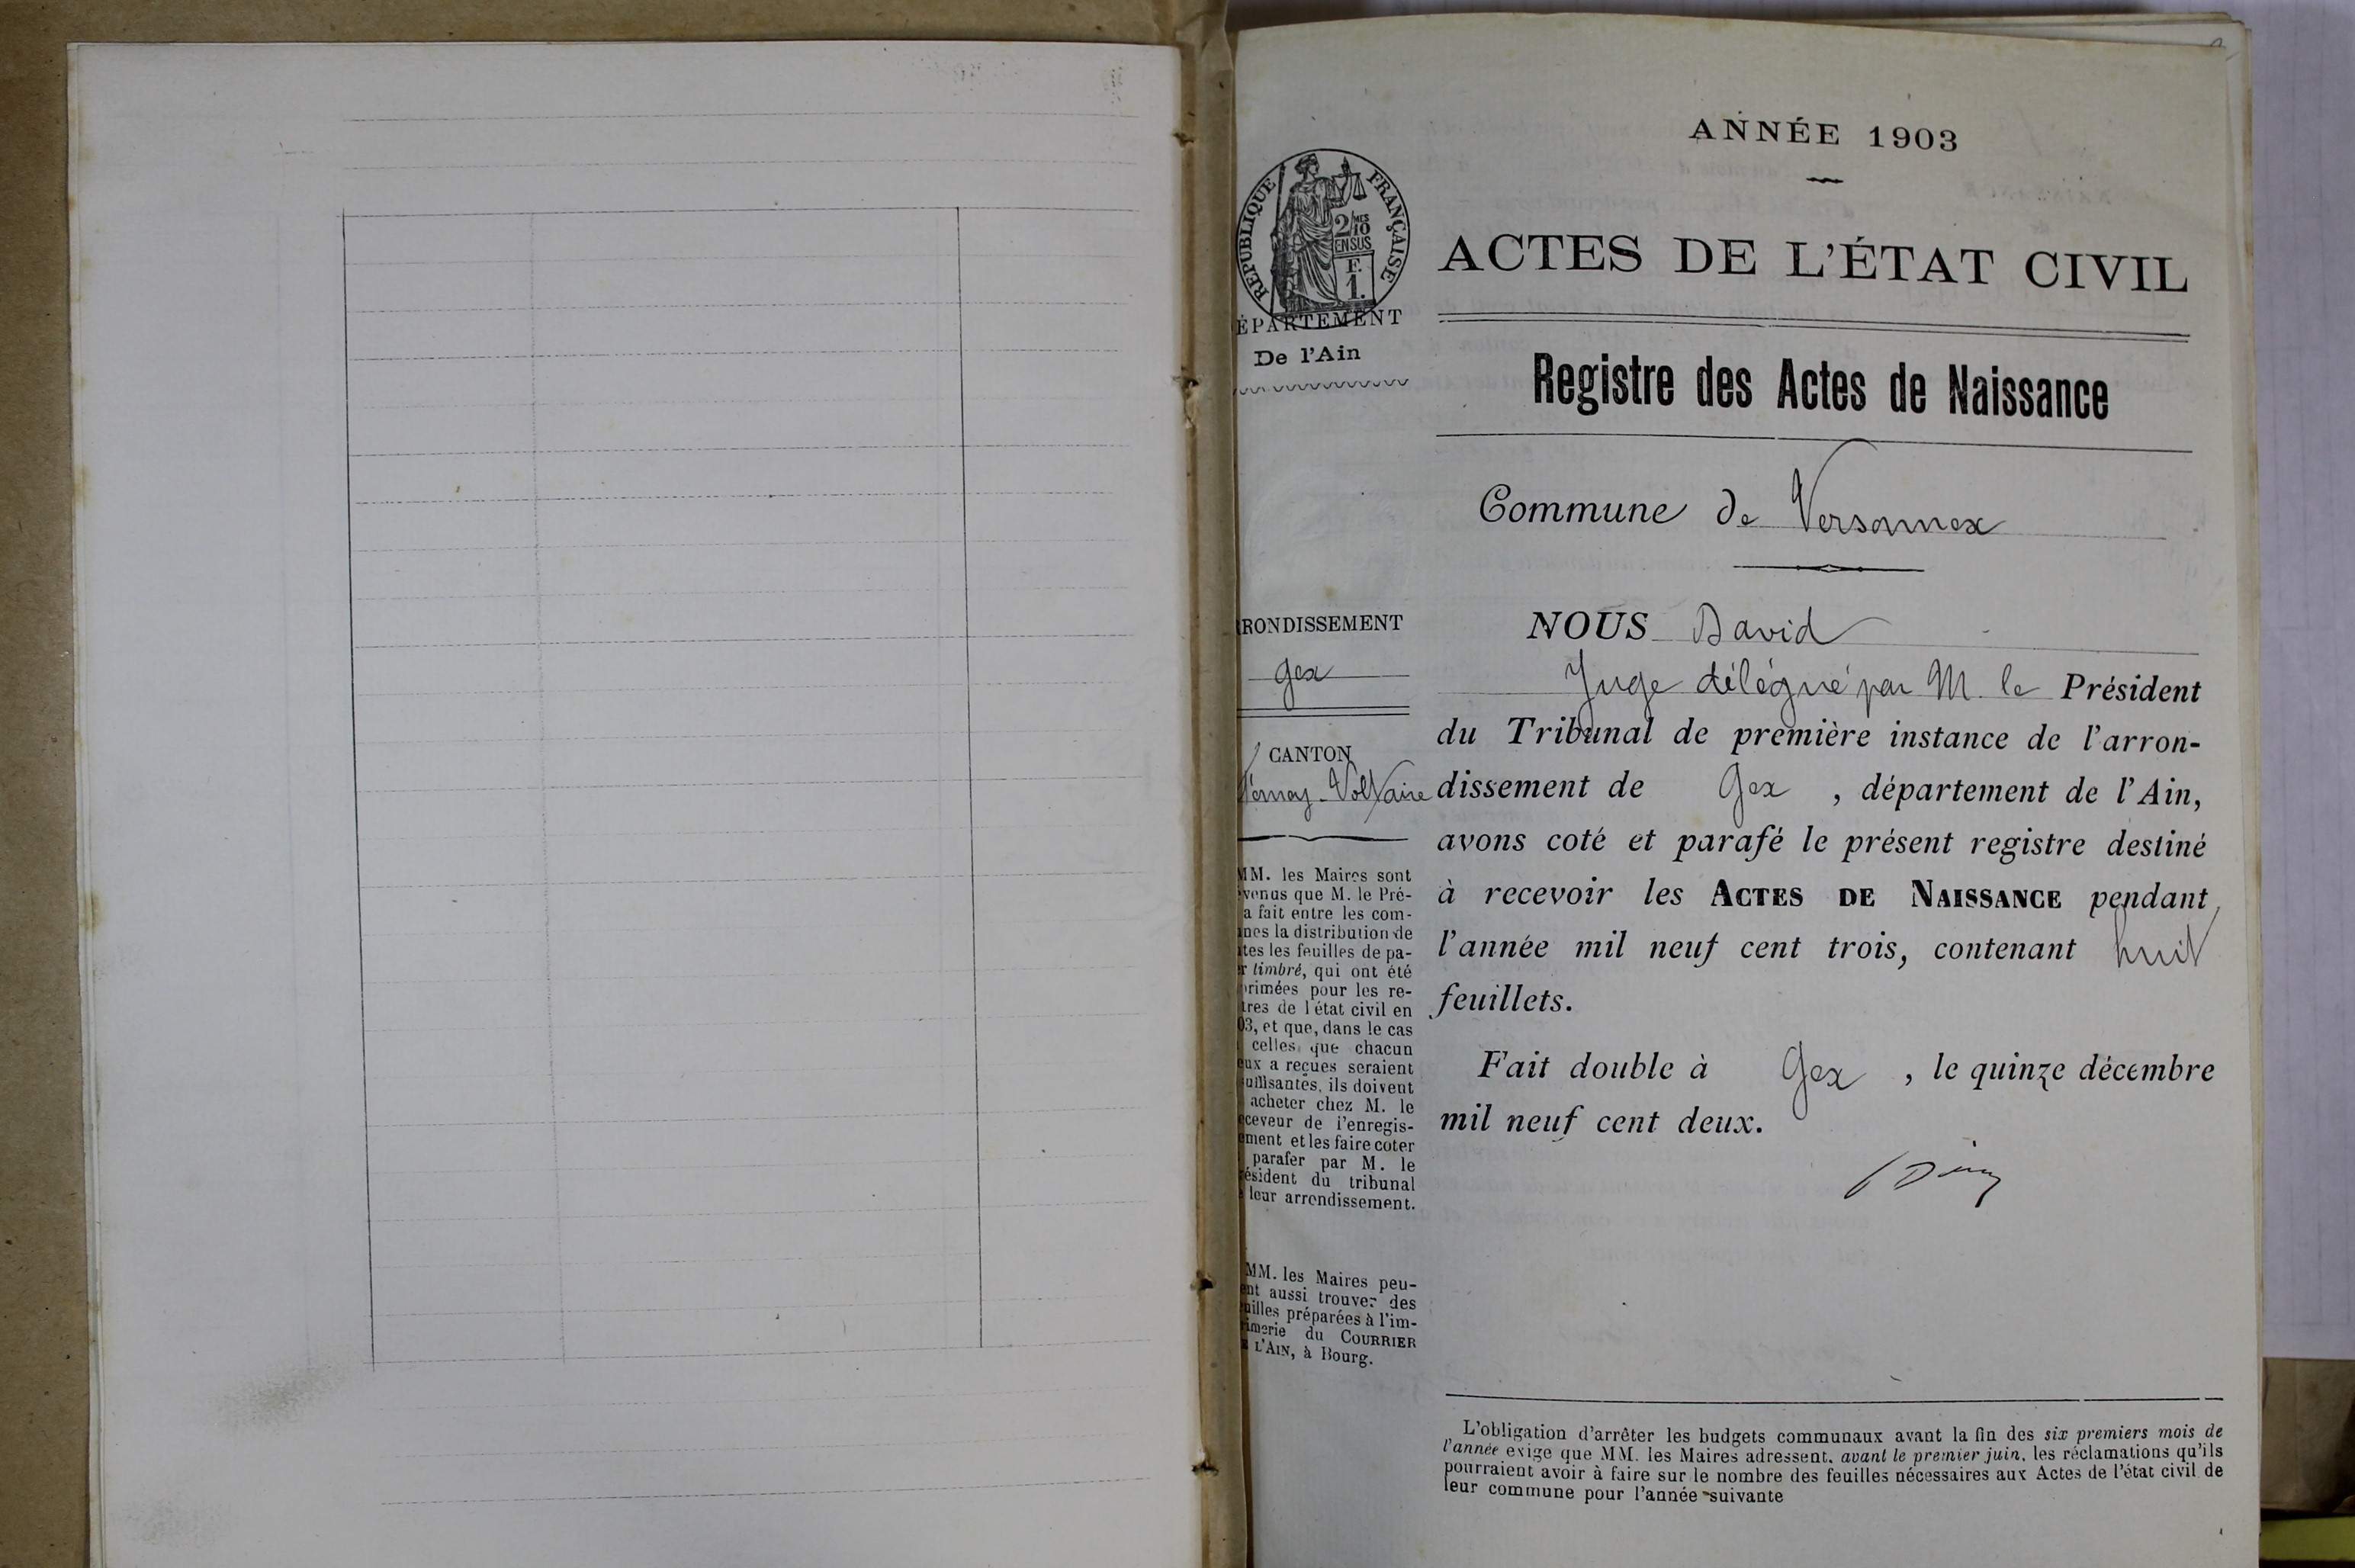 ANNÉE 1903
RÉPUBLIQUE FRANÇAISE
2/10 MES
EN SUS
F.
1.
ACTES DE L'ÉTAT CIVIL
ÉPARTEMENT
De l'Ain
Registre des Actes de Naissance
Commune de Versonnex
RONDISSEMENT
Gex
CANTON
Ferney-Voltaire
MM. les Maires sont
venus que M. le Pré-
a fait entre les com-
nes la distribution de
tes les feuilles de pa-
r timbré, qui ont été
primées pour les re-
tres de l'état civil en
03, et que, dans le cas
celles que chacun
eux a reçues seraient
uffisantes, ils doivent
acheter chez M. le
ceveur de l'enregis-
ement et les faire coter
parafer par M. le
ésident du tribunal
leur arrondissement.
MM. les Maires peu-
ent aussi trouver des
uilles préparées à l'im-
imerie du COURRIER
L'AIN, à Bourg.
NOUS David
Juge délégué par M. le Président
du Tribunal de première instance de l'arron-
dissement de Gex , département de l'Ain,
avons coté et parafé le présent registre destiné
à recevoir les ACTES DE NAISSANCE pendant
l'année mil neuf cent trois, contenant huit
feuillets.
Fait double à Gex , le quinze décembre
mil neuf cent deux.
L'obligation d'arrêter les budgets communaux avant la fin des six premiers mois de
l'année exige que MM. les Maires adressent, avant le premier juin, les réclamations qu'ils
pourraient avoir à faire sur le nombre des feuilles nécessaires aux Actes de l'état civil de
leur commune pour l'année suivante